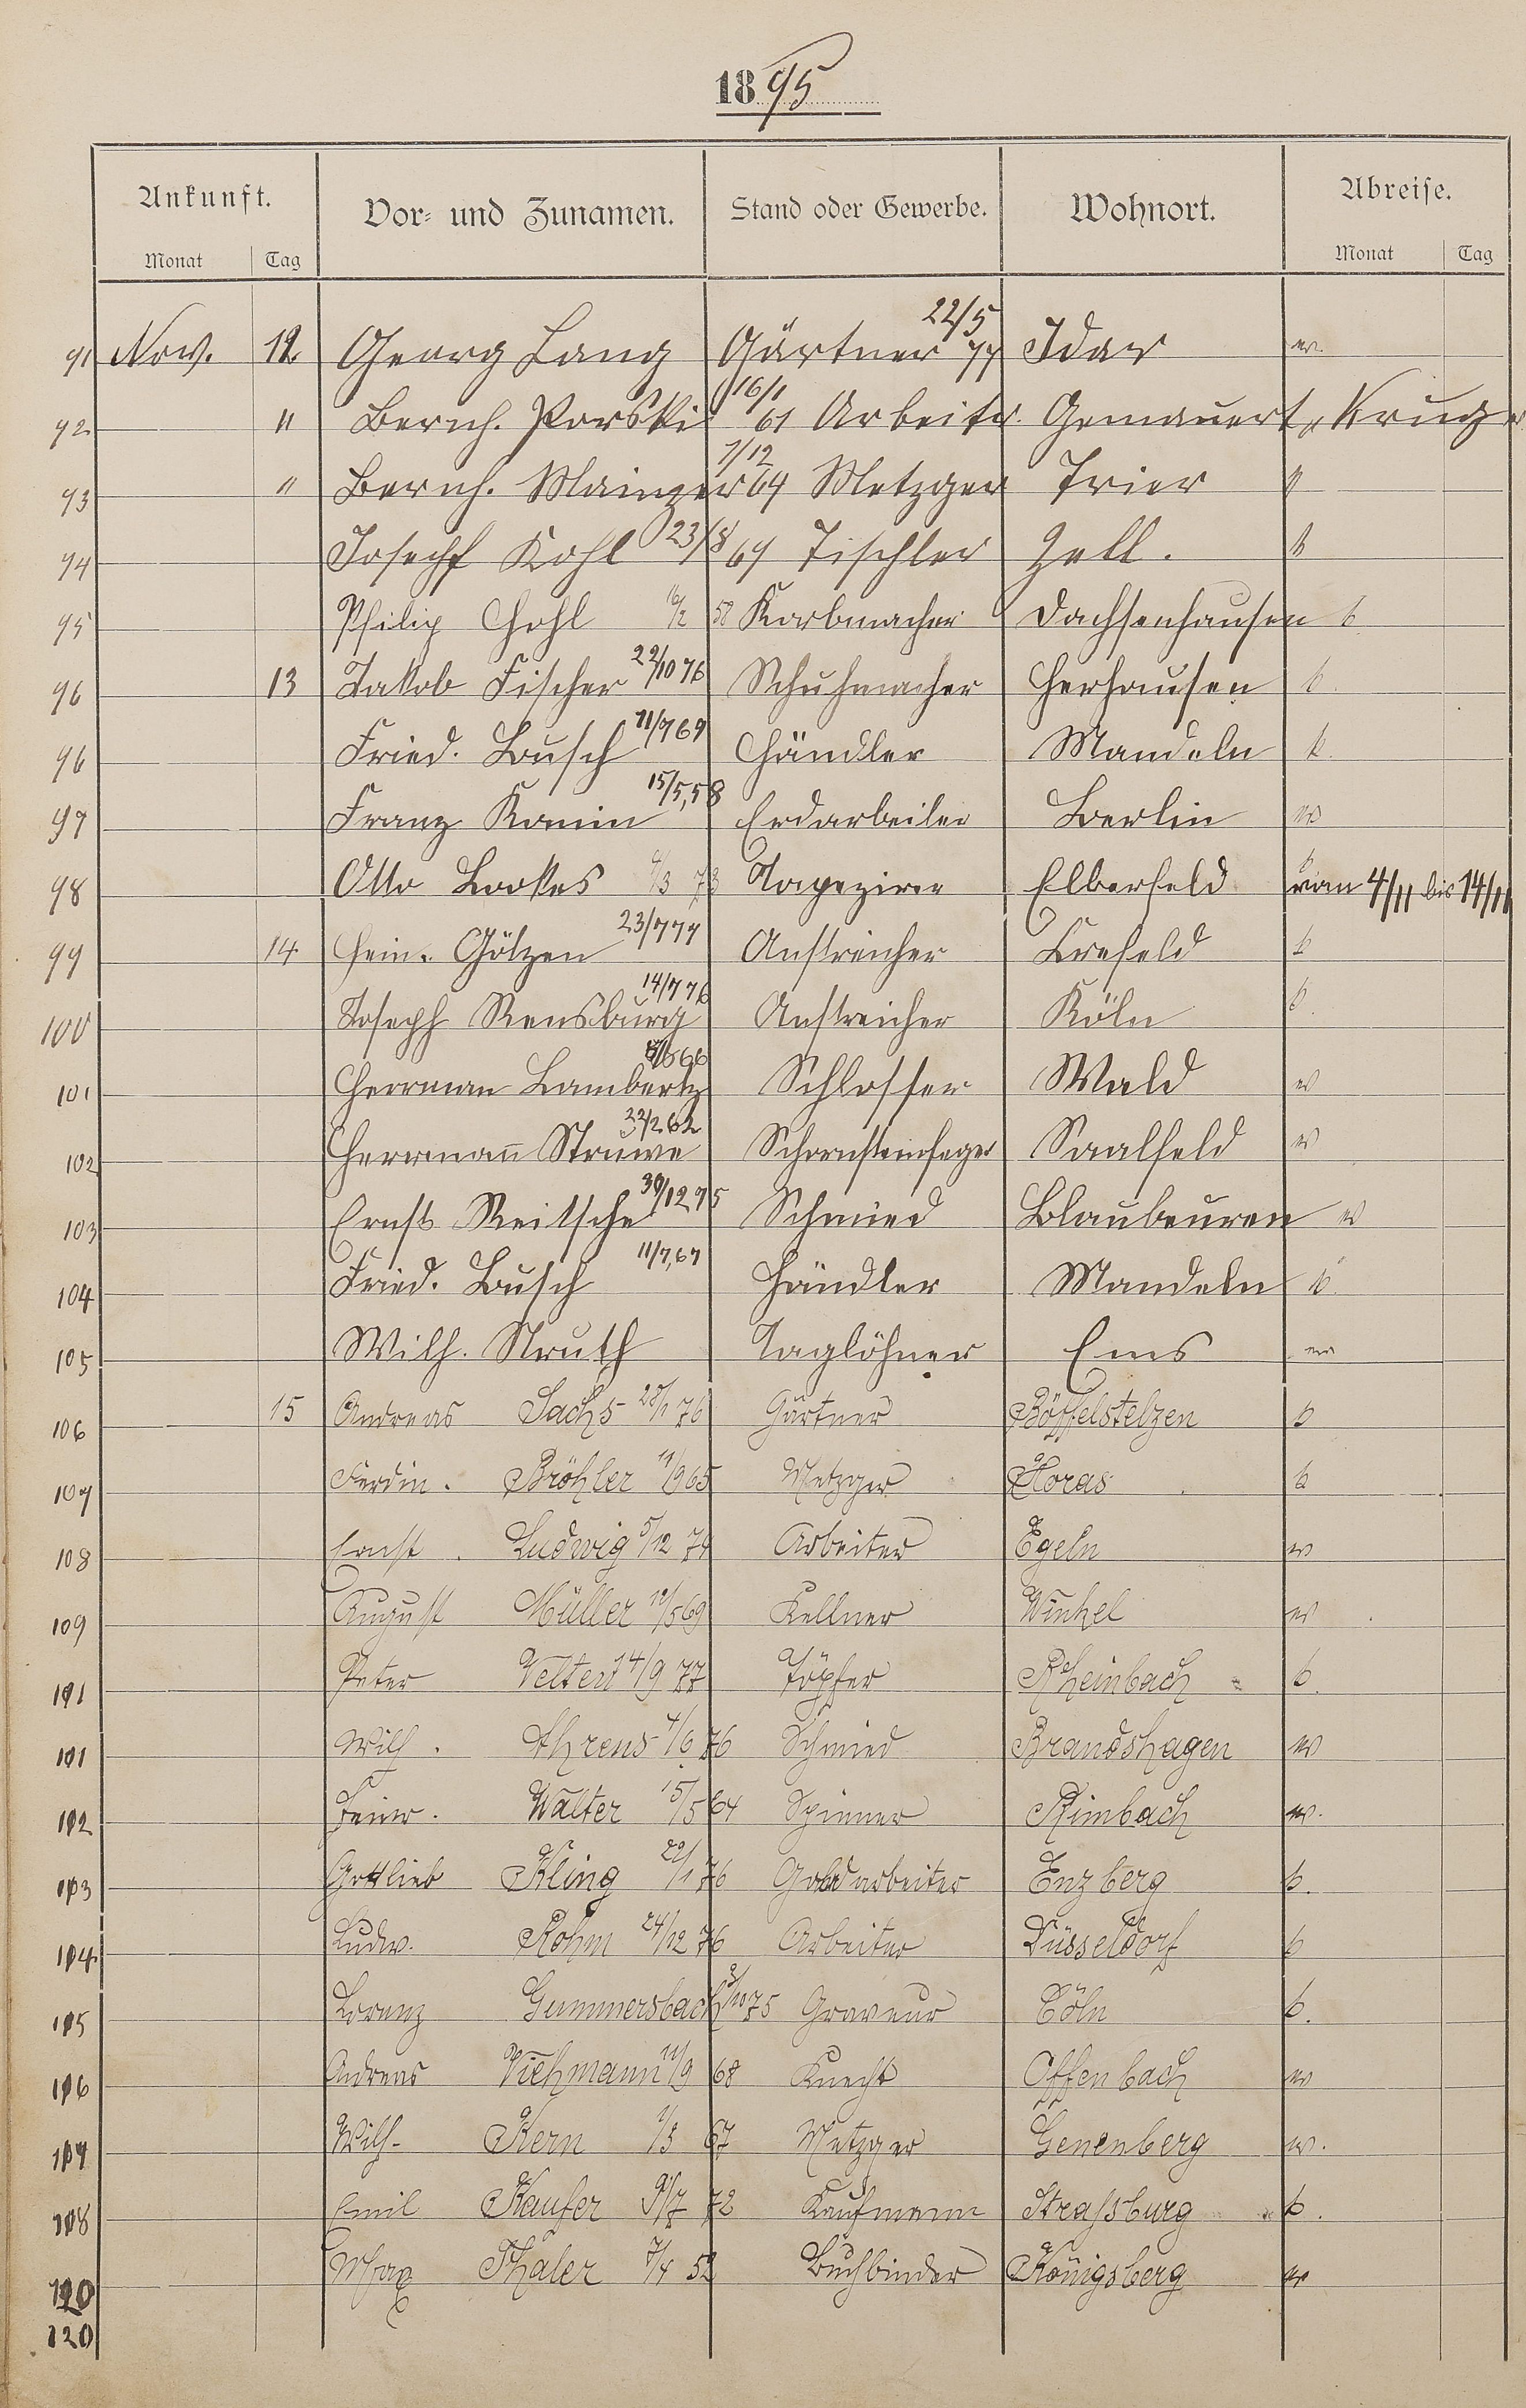 1895
Ankunft. Vor= und Zunamen. Stand oder Gewerbe. Wohnort. Abreise.
Monat Tag Monat Tag
91 Nov. 12. Georg Lang Gärtner 22/5 77 Idar
92 " Bernh. Porski 16/1 61 Arbeiter Gemauert Krug
93 " Bernh. Mainzer 1/12 64 Metzger Trier
94 Joseph Kohl 23/8 64 Tischler Zell.
95 Philip Hohl 16/2 58 Korbmacher Dachsenhausen b
96 13 Jakob Fischer 22/10 76 Schuhmacher Herhausen b.
96 Fried. Busch 11/7 69 Händler Mandeln k.
97 Franz Komin 15/5, 58 Erdarbeiter Berlin w
98 Otto Bookes /3 73 Tapezirer Elberfeld vom 4/11 bis 14/11
99 14 Hein. Götzen 23/7 77 Anstreicher Crefeld b
100 Joseph Rensburg 14/7 76 Anstreicher Köln b.
101 Herrman Lambertz 66 Schlosser Wald w
102 Herrmann Struwe 22/2 62 Schornsteinfeger Saalfeld w
103 Ernst Reitsche 30/12 75 Schmied Blaubeuren w
104 Fried. Busch 11/7, 67 Händler Mandeln b.
105 Wilh. Struth Taglöhner Ems w
106 15 Andreas Sachs 28/1 76 Gärtner Böffelstelzen b
107 Ferdin. Bröhler 11/9 65 Metzger Horas b
108 Ernst Ludwig 5/12 74 Arbeiter Egeln w
109 August Müller 12/5 69 Kellner Winkel w
101 Peter Velten 14/9 77 Töpfer Rheinbach b.
101 Wilh. Ahrens 4/6 76 Schmied Brandshagen w
112 Heinr. Walter 15/5 64 Spinner Rimbach w.
113 Gottlieb Kling 22/1 76 Goldarbeiter Enzberg b.
114. Ludw. Röhm 24/12 76 Arbeiter Düsseldorf b
115 Lorenz Gummersbach /10 75 Graveur Cöln b.
116 Andreas Viehmann 11/9 68 Knecht Offenbach w
117 Wilh. Kern 1/3 67 Metzger Genenberg w.
118 Emil Kaufer 9/7 72 Kaufmann Strassburg b.
120 Max Thaler 7/4 52 Buchbinder Königsberg w
120